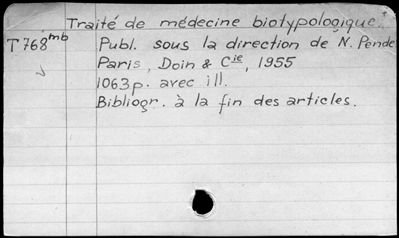 Traité de médecine biotypologique.
T768mb Publ. sous la direction de N. Pende
Paris, Doin & Cie, 1955
1063p. avec ill.
Bibliogr. à la fin des articles.